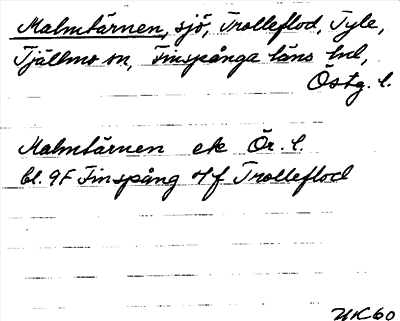 Malmtärnen, sjö, Trolleflod, Tyle,
Tjällmo sn, Finspånga läns hd,
Östg. l.
Malmtärnen ek Ör. l.
bl. 9F Finspång Trolleflod
UK60